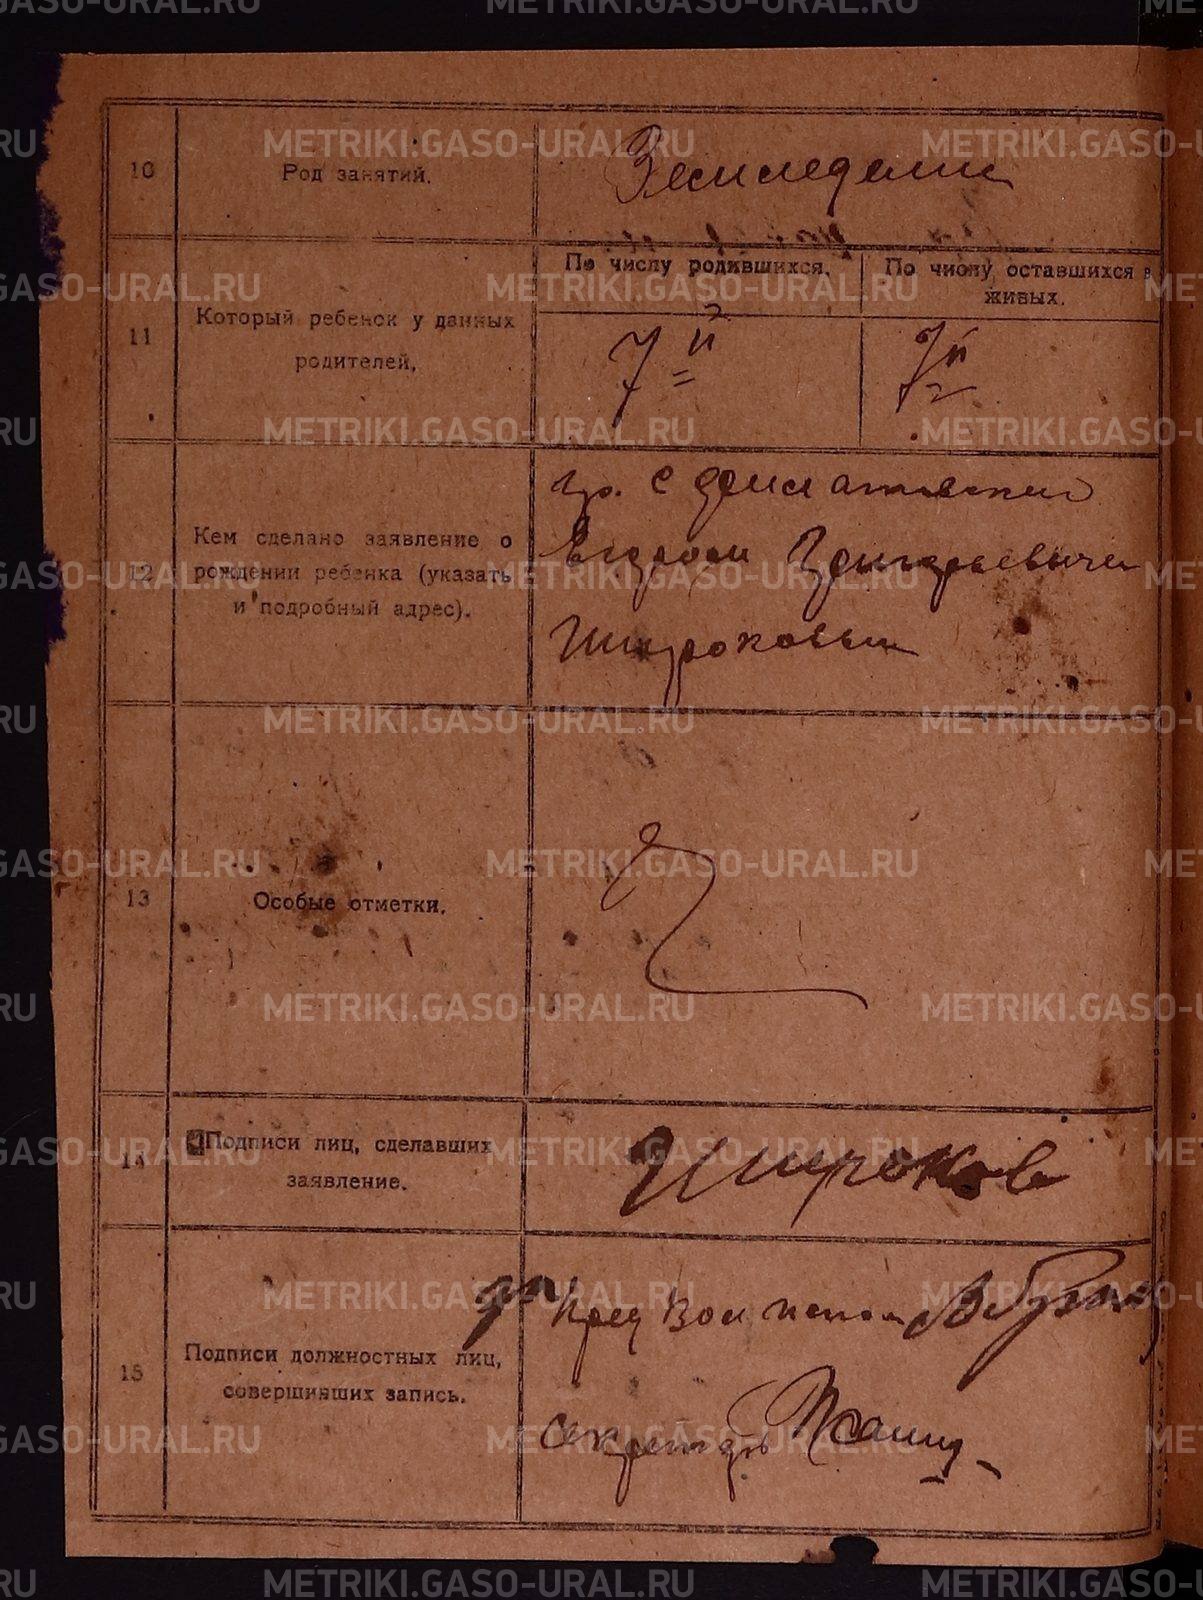 10
Род занятий.
Земледелие
11
Который ребенок у данных
родителей.
По числу родившихся.
7й
По числу оставшихся в
живых.
7й
12
Кем сделано заявление о
рождении ребенка (указать
и подробный адрес).
гр. с
Егором Григорьевичем
Широковым
13
Особые отметки.
14
Подписи лиц, сделавших
заявление.
Широков
15
Подписи должностных лиц,
совершивших запись.
Пред Вол испол
секретарь
METRIKI.GASO-URAL.RU